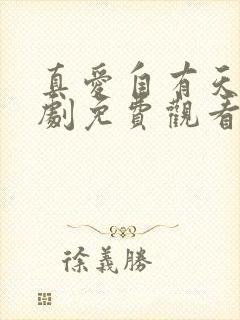 真愛自有天
劇免費觀看
徐義勝